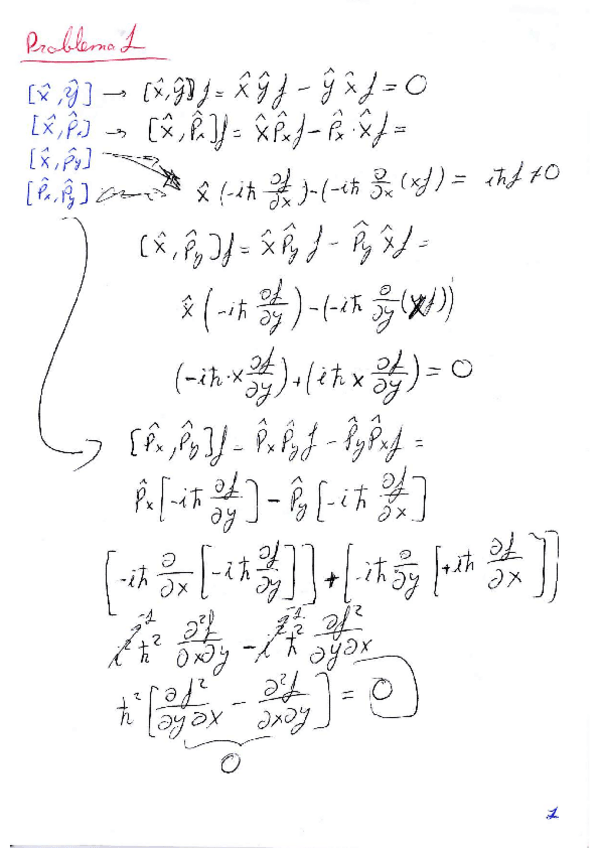 Problema 1
[x̂, ŷ] → [x̂, ŷ]f = x̂ ŷ f - ŷ x̂ f = 0
[x̂, P̂x] → [x̂, P̂x]f = x̂ P̂x f - P̂x · x̂ f =
[x̂, p̂y]
[P̂x, P̂y] x̂ (-iħ ∂f/∂x) - (-iħ ∂/∂x (xf) = iħf ≠ 0
[x̂, P̂y]f = x̂ P̂y f - P̂y x̂ f =
x̂ (-iħ ∂f/∂y) - (-iħ ∂/∂y (xf))
(-iħ · x ∂f/∂y) + (iħ x ∂f/∂y) = 0
[P̂x, P̂y]f = P̂x P̂y f - P̂y P̂x f =
P̂x [-iħ ∂f/∂y] - P̂y [-iħ ∂f/∂x]
[-iħ ∂/∂x [-iħ ∂f/∂y]] + [-iħ ∂/∂y [+iħ ∂f/∂x]]
i² -1 ħ² ∂²f/∂x∂y - i² -1 ħ² ∂f²/∂y∂x
ħ² [∂f²/∂y∂x - ∂²f/∂x∂y] = 0
0
1